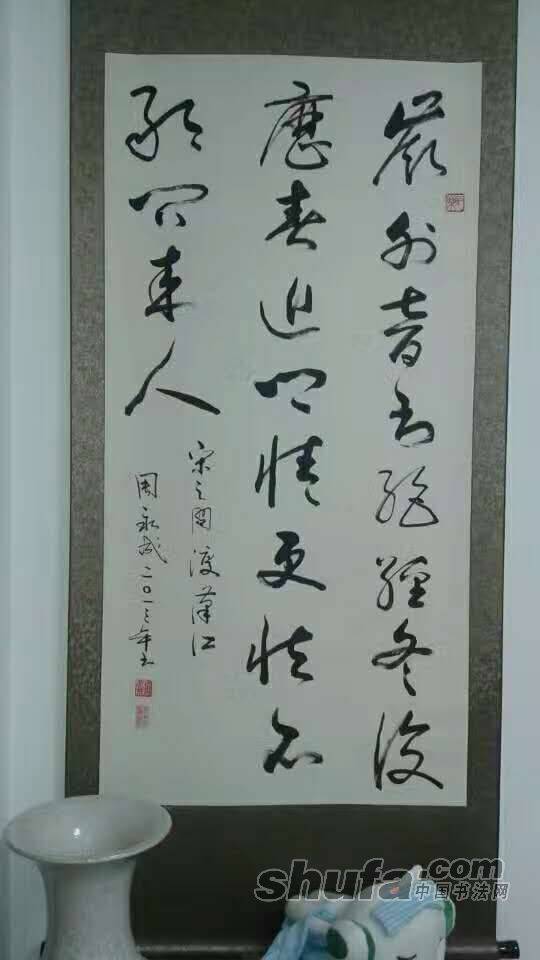 嶺外音書絕經冬復
歷春近鄉情更怯不
敢問來人
宋之問渡漢江
周永成二〇一三年书
shufa.com
中国书法网